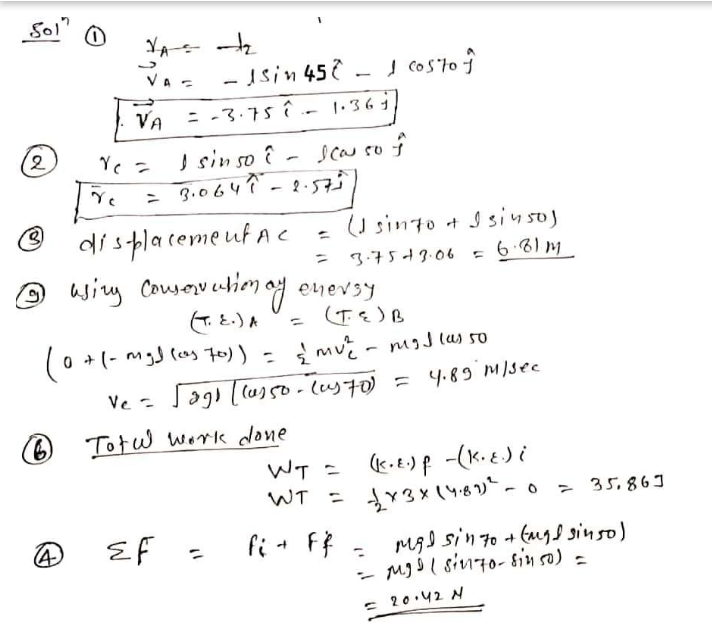 Solⁿ ①
V⃗A = - l sin 45 î - l cos 70 ĵ
V⃗A = -3.75 î - 1.36 ĵ
② rc = l sin 50 î - l cos 50 ĵ
r⃗c = 3.064 î - 2.57 ĵ
③ displacement AC = (l sin 70 + l sin 50)
= 3.75 + 3.06 = 6.81 M
⑨ using conservation of energy
(T.E.)A = (T.E)B
(0 + (- mgl cos 70)) = ½ mvc² - mgl cos 50
Vc = √2gl (cos 50 - cos 70) = 4.89 m/sec
⑥ Total work done
WT = (K.E.)f - (K.E.)i
WT = ½ × 3 × (4.89)² - 0 = 35.86 J
④ ΣF = Fi + Ff = mgl sin 70 + (mgl sin 50)
= mgl (sin 70 - sin 50) =
= 20.42 N